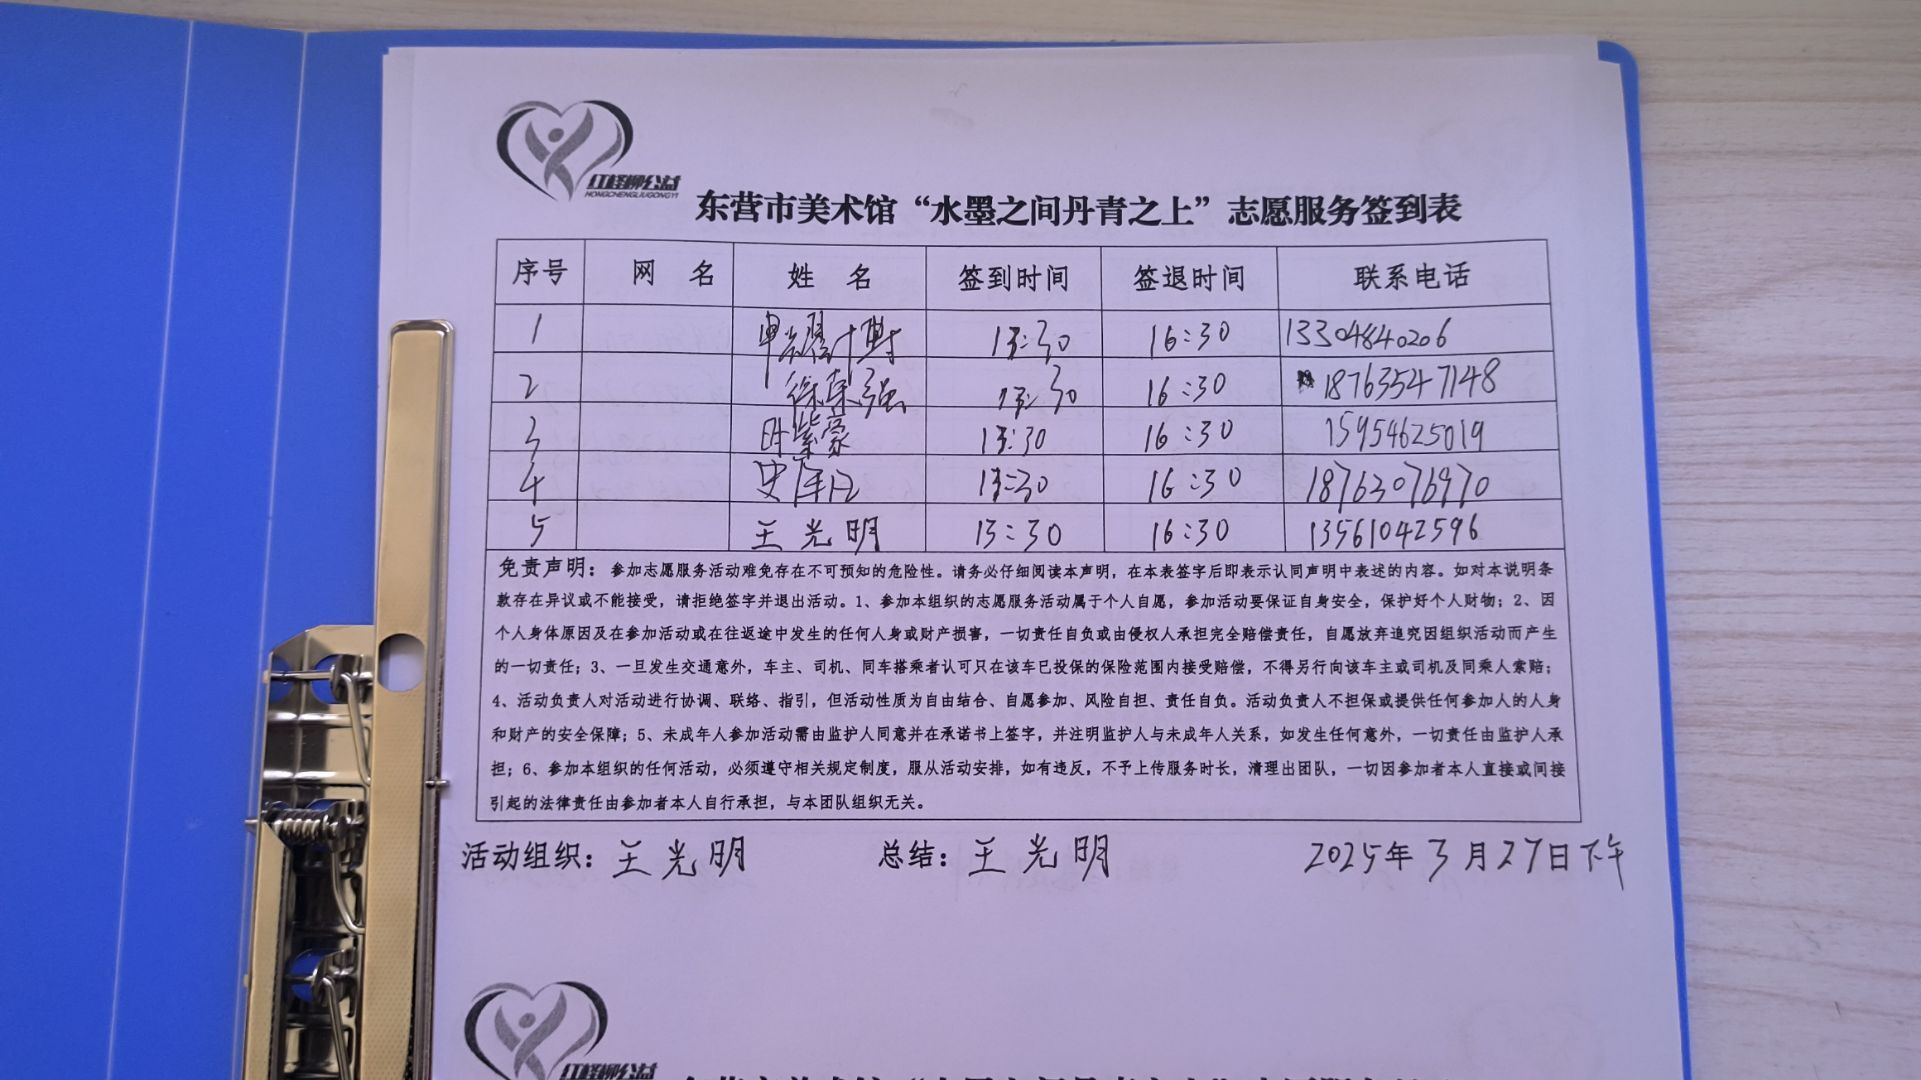 红柽柳公益
HONGCHENGLIUGONGYI
东营市美术馆“水墨之间丹青之上”志愿服务签到表
序号 网 名 姓 名 签到时间 签退时间 联系电话
1 13:30 16:30 13304840206
2 徐荣强 13:30 16:30 18763547148
3 时紫豪 13:30 16:30 15954625019
4 史 13:30 16:30 18763076970
5 王光明 13:30 16:30 13561042596
免责声明：参加志愿服务活动难免存在不可预知的危险性。请务必仔细阅读本声明，在本表签字后即表示认同声明中表述的内容。如对本说明条
款存在异议或不能接受，请拒绝签字并退出活动。1、参加本组织的志愿服务活动属于个人自愿，参加活动要保证自身安全，保护好个人财物；2、因
个人身体原因及在参加活动或在往返途中发生的任何人身或财产损害，一切责任自负或由侵权人承担完全赔偿责任，自愿放弃追究因组织活动而产生
的一切责任；3、一旦发生交通意外，车主、司机、同车搭乘者认可只在该车已投保的保险范围内接受赔偿，不得另行向该车主或司机及同乘人索赔；
4、活动负责人对活动进行协调、联络、指引，但活动性质为自由结合、自愿参加、风险自担、责任自负。活动负责人不担保或提供任何参加人的人身
和财产的安全保障；5、未成年人参加活动需由监护人同意并在承诺书上签字，并注明监护人与未成年人关系，如发生任何意外，一切责任由监护人承
担；6、参加本组织的任何活动，必须遵守相关规定制度，服从活动安排，如有违反，不予上传服务时长，清理出团队，一切因参加者本人直接或间接
引起的法律责任由参加者本人自行承担，与本团队组织无关。
活动组织：王光明 总结：王光明 2025年3月27日下午
红柽柳公益